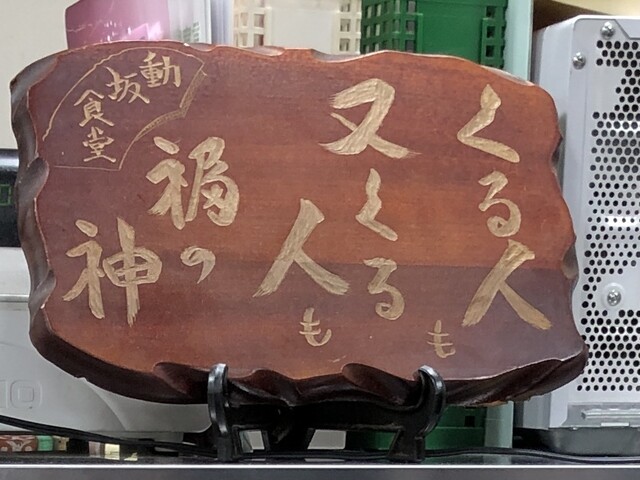 くる人も
又くる人も
福の神
動坂食堂